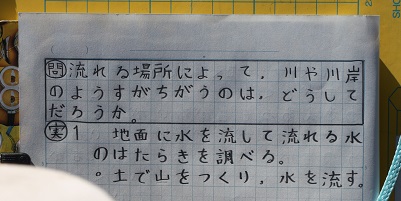 問 流れる場所によって，川や川岸
のようすがちがうのは，どうして
だろうか。
実 1 地面に水を流して流れる水
のはたらきを調べる。
。土で山をつくり，水を流す。